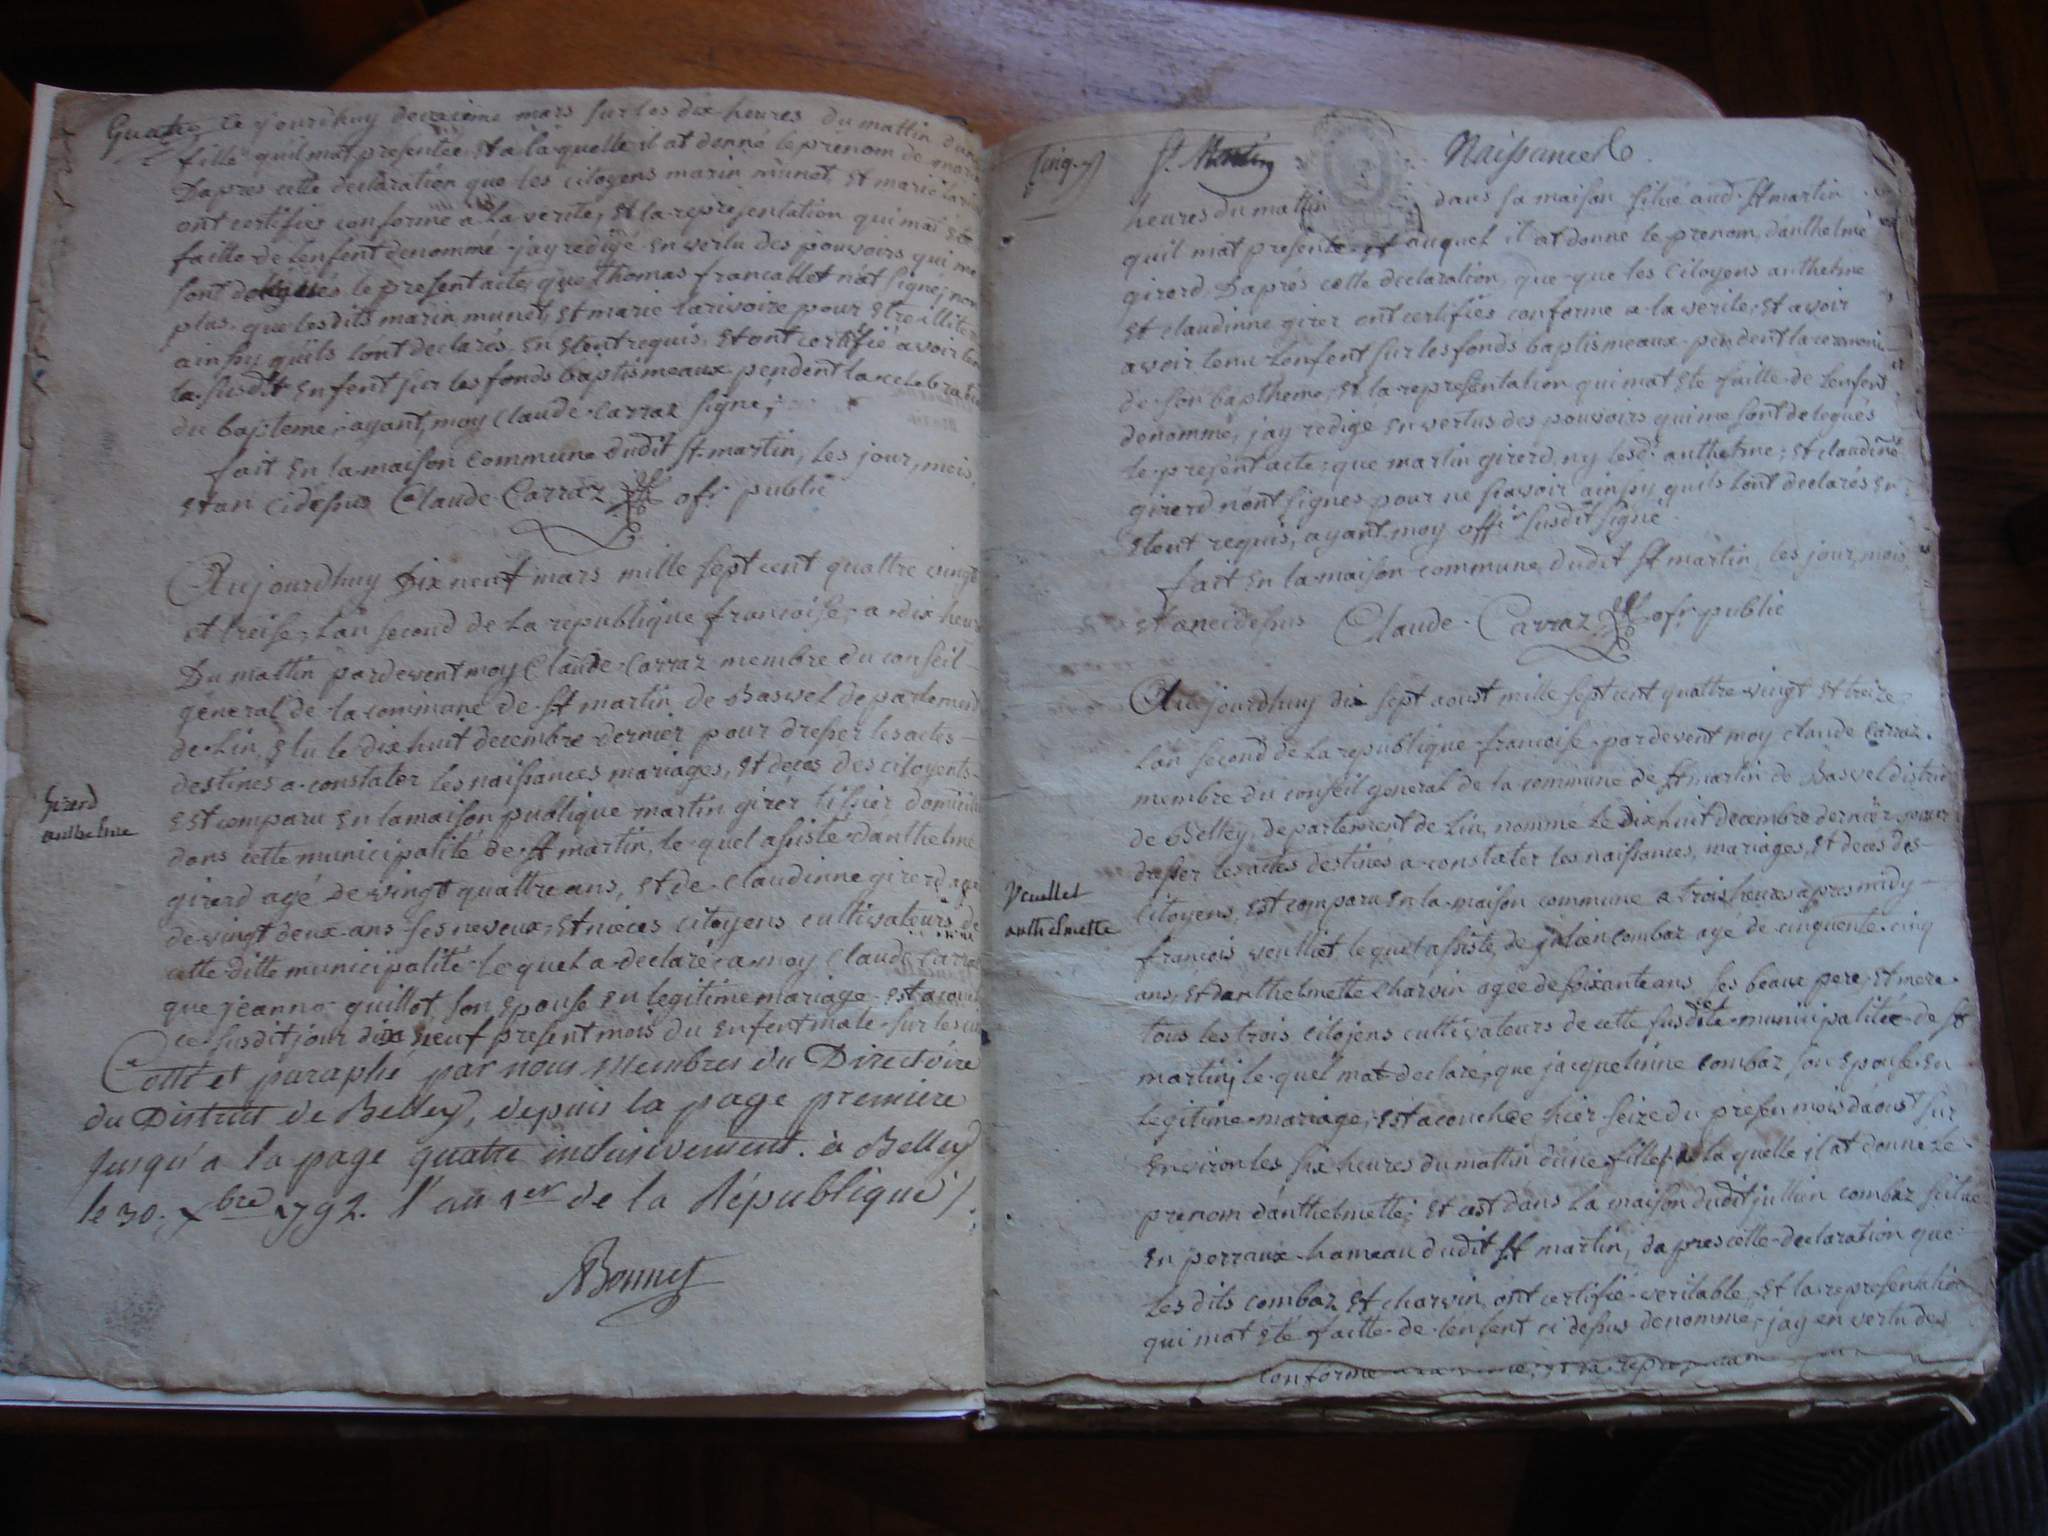 Quatre
le jourdhuy deuxième mars sur les dix heures du mattin dune
fille quil mat presentée et a la quelle il at donné le prénom de marie
Daprès cette declaration que les citoyens marin munet et marie larivoire
ont certifiés conforme a la verité, et la representation qui mai été
faitte de lenfent denommé jay redigé en vertu des pouvoirs qui me
sont delégués le present acte, que thomas francallet nat signé, non
plus que lesdits marin munet, et marie larivoire pour etre illitérés
ainsy quils lont declarés, en étent requis, et ont certifié avoir tenu
la susdit enfent sur les fonds baptismeaux pendent la celebration
du bapteme, ayant moy Claude Carraz signé,
fait en la maison commune dudit st martin, les jour, mois,
et an cidessus Claude Carraz ofr public
Aujourdhuy dix neuf mars mille sept cent quattre vingt
et treise, lan second de la republique francoise, a dix heures
Du mattin pardevent moy Claude Carraz membre du conseil
géneral de la commune de st martin de Bawel departement
de Lin, élu le dix huit decembre dernier pour dresser les actes
destinés a constater les naissances mariages, et déces des citoyents
Girerd
anthelme
est comparu en la maison publique martin girer tissier domicilié
dans cette municipalité de st martin, le quel assisté danthelme
girerd agé de vingt quattre ans, et de claudinne girerd agé
de vingt deux ans ses neveux, et nieces citoyens cultivateurs de
cette ditte municipalité le quel a declaré a moy Claude Carraz
que jeanne guillot, son epouse en legitime mariage est acouchée
ce susdit jour dix neuf present mois du enfent male sur les six
Cotté et paraphé par nous membres du Directoire
du District de Belley, depuis la page première
jusqu'a la page quatre inclusivement. à Belley
le 30. Xbre 1792. l'an 1er de la République /.
Bonnet
cinq.
St. Martin
Naissances
heures du mattin dans sa maison situé aud. st martin
quil mat presenté et auquel il at donné le prenom danthelme
girerd. Daprés cette declaration, que que les Citoyens anthelme
et claudinne girer ont certifiés conforme a la verité, et avoir
avoir tenu lenfent sur les fonds baptismeaux pendent la ceremonie
de son baptheme, et la representation qui mat été faitte de lenfent
denommé, jay redigé en vertus des pouvoirs qui me sont delegués
le présent acte, que martin girerd, ny lesd. anthelme, et claudine
girerd nont signés pour ne scavoir ainsy quils lont declarés en
étent requis, ayant moy offr susdit signé
fait en la maison commune dudit st martin, les jour, mois,
et an cidessus Claude Carraz ofr public
Aujourdhuy dix sept aoust mille sept cent quattre vingt et treize
Lan second de la republique francoise pardevent moy claude Carraz
membre du conseil general de la commune de st martin de Bawel district
de Belley, departement de Lin, nommé le dix huit decembre dernier pour
dresser les actes destinés a constater les naissances, mariages, et decés des
Veuillet
anthelmette
citoyens, est comparu en la maison commune a trois heures apres midy
francois veulliet le quel assisté de julien combaz agé de cinquente cinq
ans, et danthelmette charvin agée de soixante ans, ses beaux pere, et mere
tous les trois citoyens cultivateurs de cette susditte municipalitée de st
martin, le quel mat declaré, que jacquelinne combaz son epouse en
legitime mariage, est acouchée hier seize du presen mois daoust sur
environ les six heures du mattin dune fille, a la quelle il at donné le
prenom danthelmette, et cest dans la maison dudit jullien combaz scitué
en perraux hameau dudit st martin, dapres cette declaration que
lesdits combaz et charvin ont certifié veritable, et la representation
qui mat eté faitte de lenfent ci dessus denommé, jay en vertu des
conforme